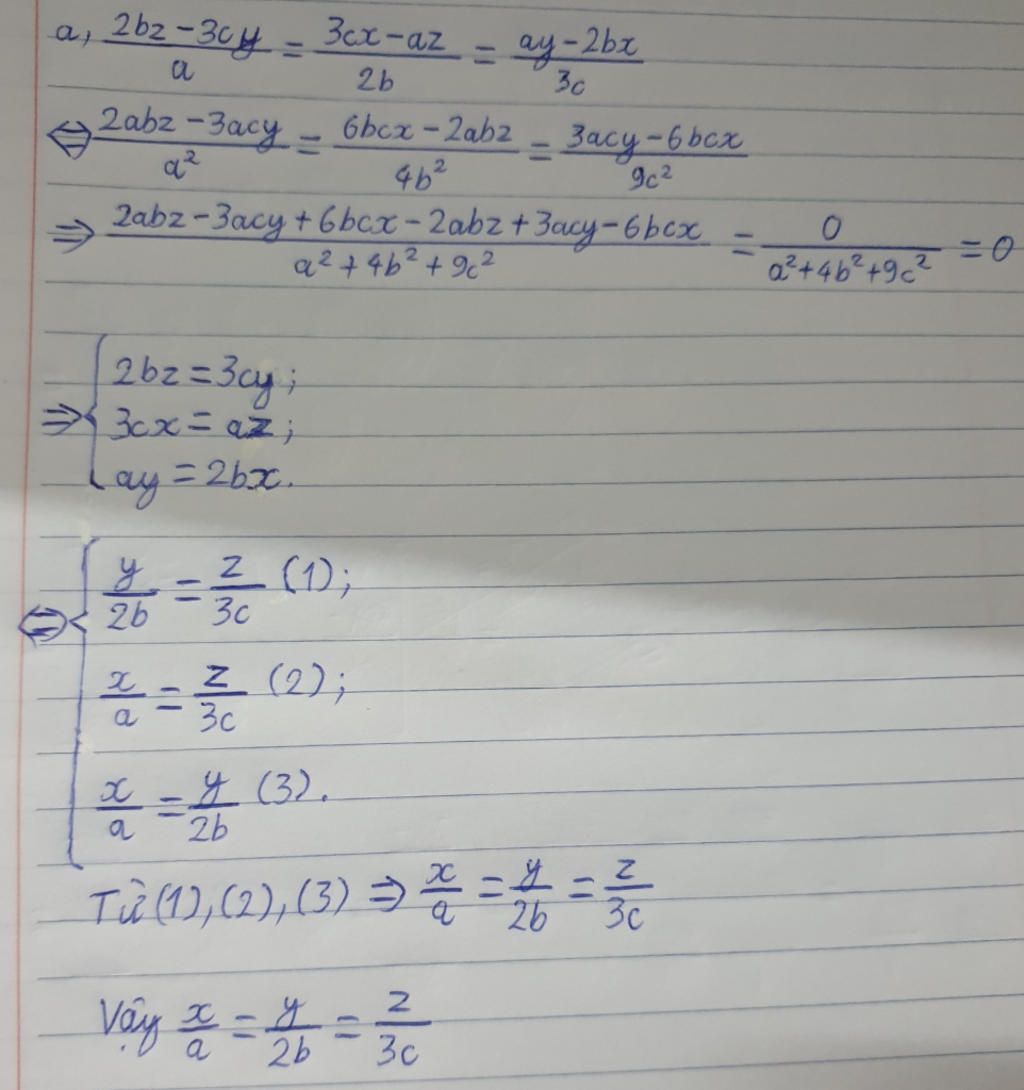 a, (2bz - 3cy)/a = (3cx - az)/2b = (ay - 2bx)/3c
⇔ (2abz - 3acy)/a² = (6bcx - 2abz)/4b² = (3acy - 6bcx)/9c²
⇒ (2abz - 3acy + 6bcx - 2abz + 3acy - 6bcx)/(a² + 4b² + 9c²) = 0/(a² + 4b² + 9c²) = 0
⇒ { 2bz = 3cy;
3cx = az;
ay = 2bx.
⇔ { y/2b = z/3c (1);
x/a = z/3c (2);
x/a = y/2b (3).
Từ (1), (2), (3) ⇒ x/a = y/2b = z/3c
Vậy x/a = y/2b = z/3c